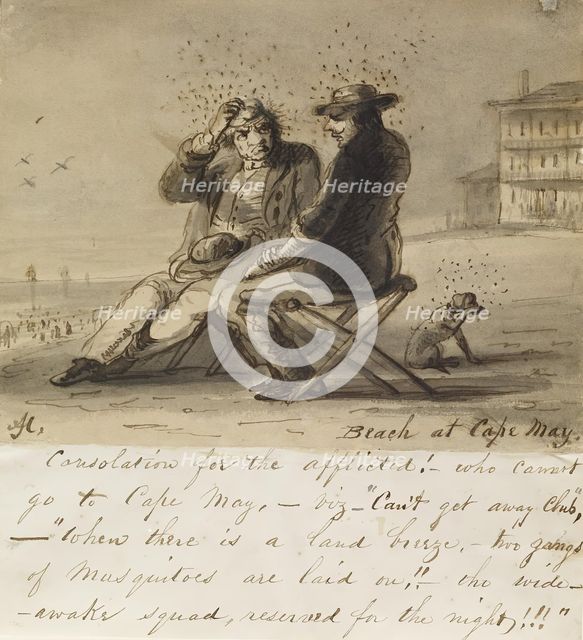 Heritage Heritage
Heritage Heritage
AC.
Beach at Cape May.
Consolation for the afflicted! - who cannot
go to Cape May, - viz - "Can't get away Club",
- "When there is a land breeze, - two gangs
of Musquitoes are laid on,!! - the wide-
-awake squad, reserved for the night,!!!"
Heritage Heritage